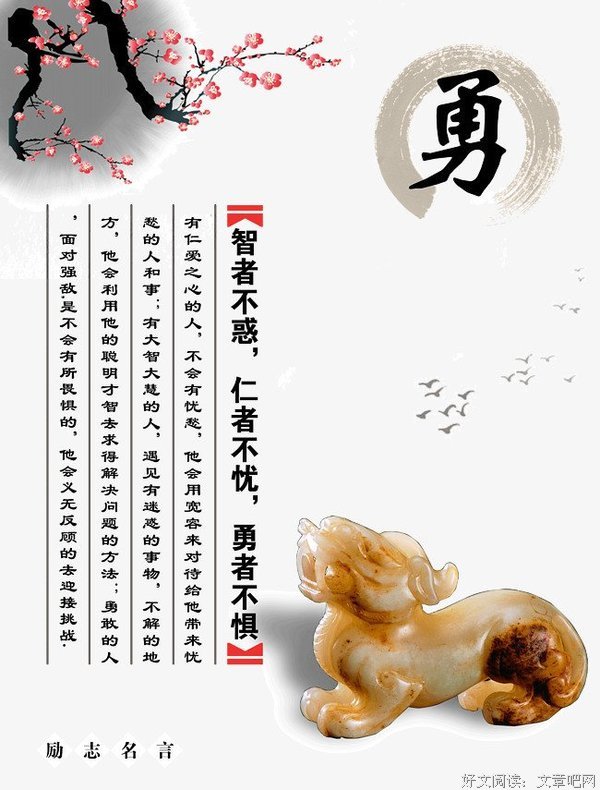 勇
智者不惑，仁者不忧，勇者不惧
有仁爱之心的人，不会有忧愁，他会用宽容来对待给他带来忧
愁的人和事；有大智大慧的人，遇见有迷惑的事物，不解的地
方，他会利用他的聪明才智去求得解决问题的方法；勇敢的人
，面对强敌.是不会有所畏惧的，他会义无反顾的去迎接挑战.
励志名言
好文阅读：文章吧网